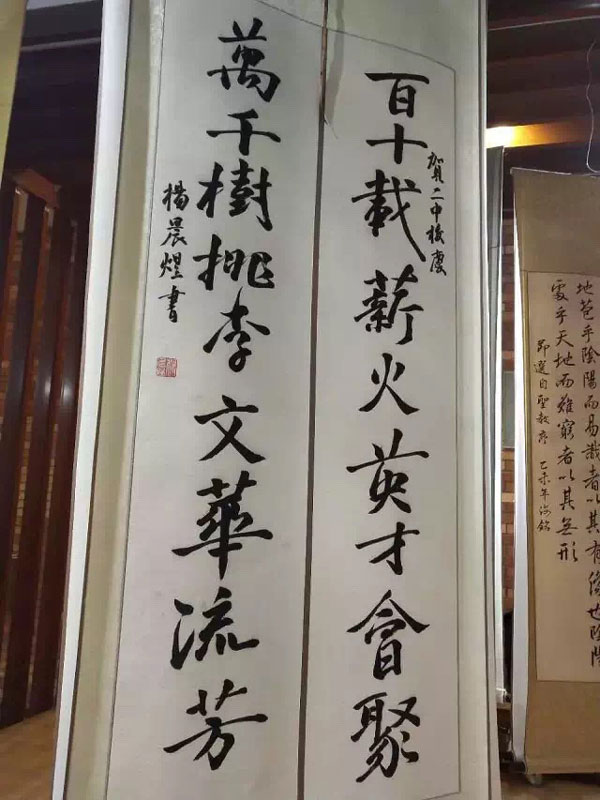 百十載薪火英才會聚
賀二中校慶
萬千樹桃李文華流芳
楊晨煜書
地苞乎陰陽而易識者以其有像也陰陽
處乎天地而難窮者以其無形
節選自聖教序 乙未年